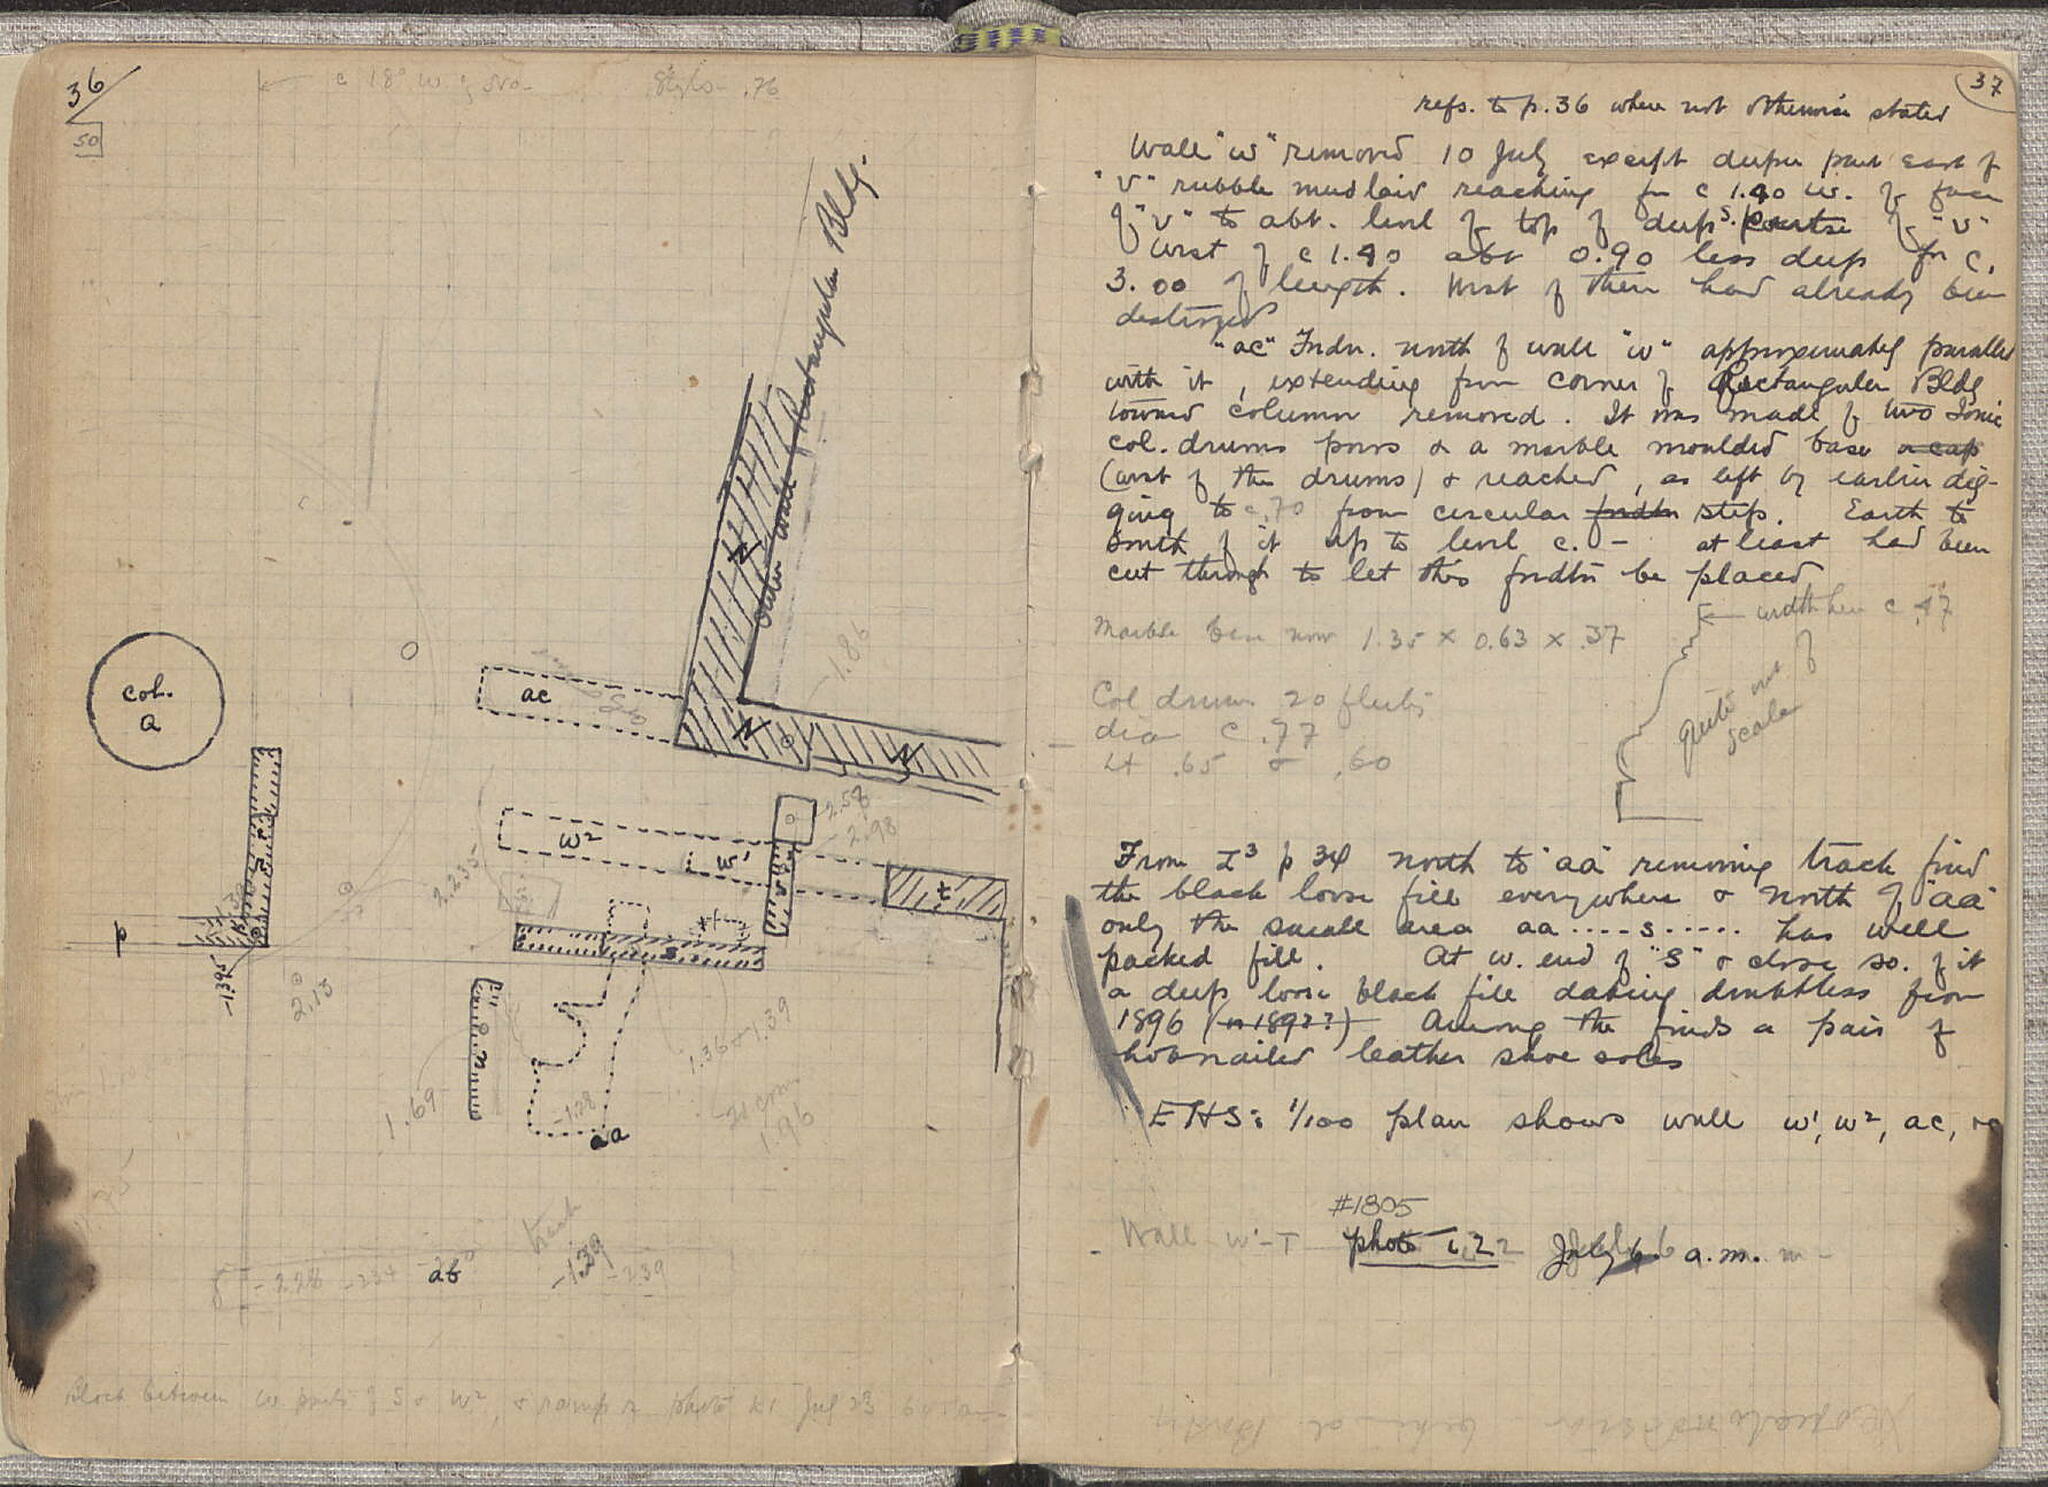 36
50
c 18° W of No-
Stylo- .76
outer wall Rectangular Bldg.
-1.86
col.
a
ac
w²
w'
2.58
-2.98
2.235
t
s
p
-1.395
2.13
1.69
1.36 + 1.39
-1.28
aa
1.96
track
-2.28 -2.34
ab
-1.39
-2.39
Block between w parts of S & W², & ramp photo K1 July 23
37
refs. to p. 36 where not otherwise stated
Wall "w" removed 10 July except deeper part east of
"v" rubble mudlaid reaching for c 1.40 w. of face
of "v" to abt. level of top of deep s. course of "v"
West of c 1.40 abt 0.90 less deep for c.
3.00 of length. West of there had already been
destroyed
"ac" Fndn. north of wall "w" approximately parallel
with it, extending from corner of Rectangular Bldg
toward column removed. It was made of two Ionic
col. drums poros & a marble moulded base or cap
(west of the drums) & reached, as left by earlier dig-
ging to c .70 from circular fndtn step. Earth to
south of it up to level c. - at least had been
cut through to let this fndtn be placed
width here c .47
Marble base now 1.35 x 0.63 x .37
quite out of
scale
Col drums 20 flutes
dia c .77
ht .65 & .60
From I³ p 34 north to "aa" removing track find
the black loose fill everywhere & north of "aa"
only the small area aa....s..... has well
packed fill. At w. end of "S" & close so. of it
a deep loose black fill dating doubtless from
1896 (or 1892?) Among the finds a pair of
hobnailed leather shoe soles
EHS: 1/100 plan shows wall w', w², ac,
#1805
- Wall w'-T photo L22 July 6 a.m.